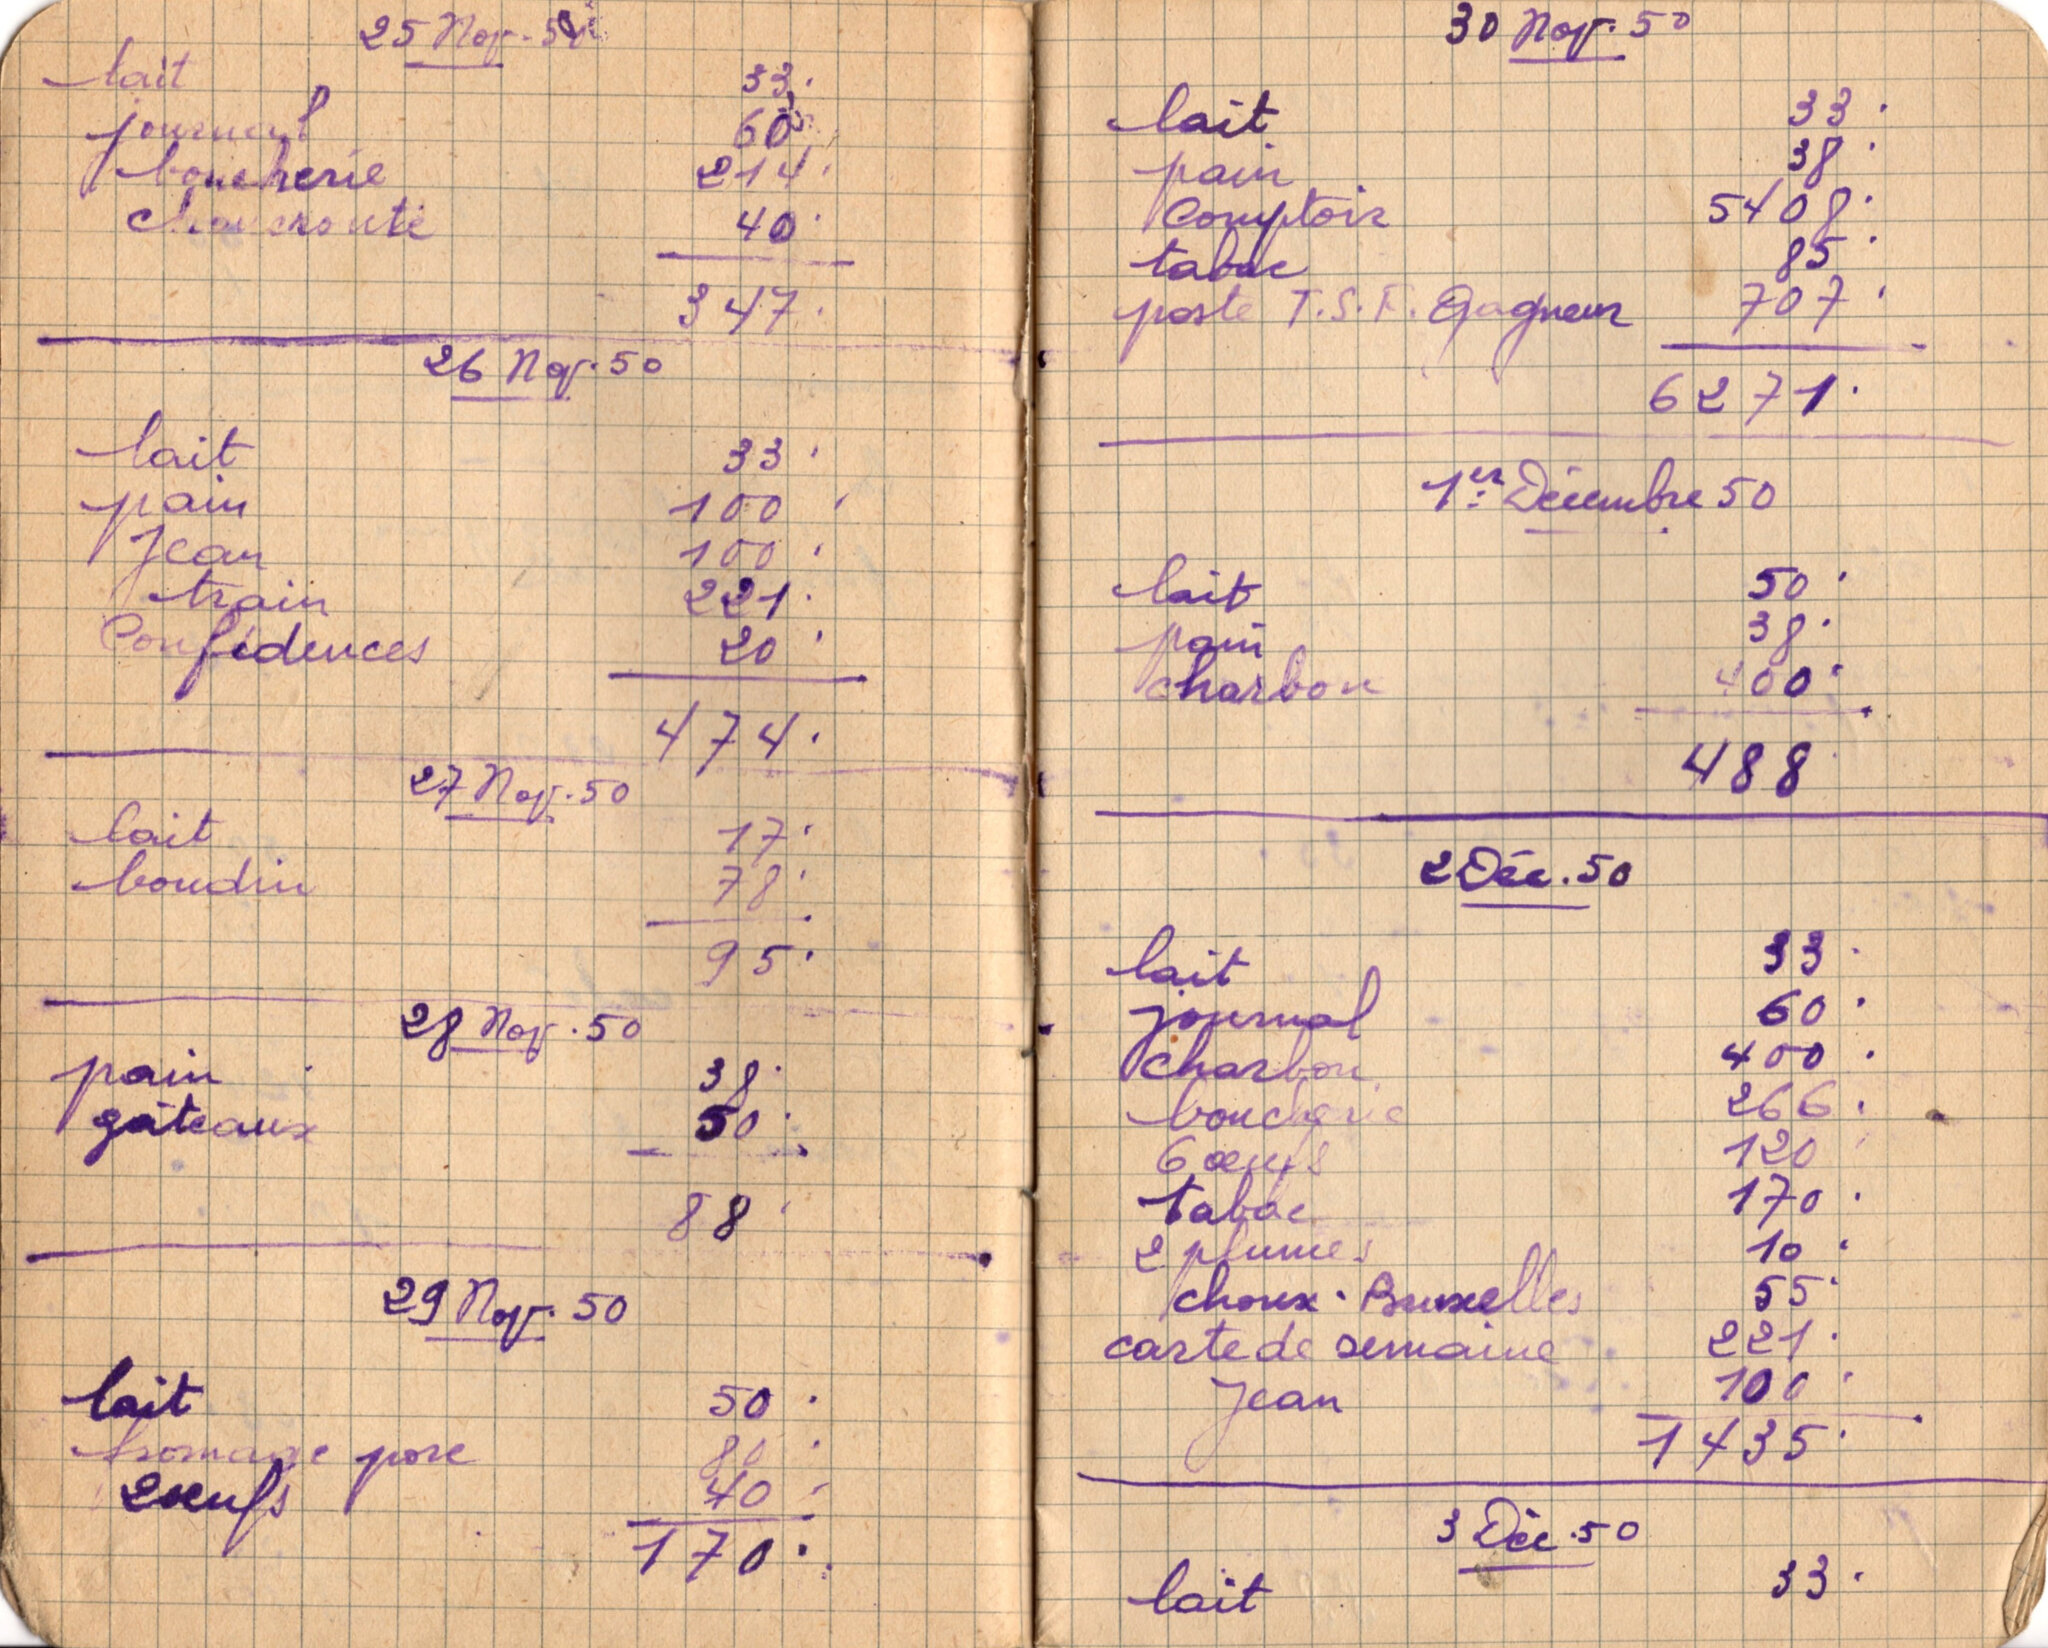 25 Nov. 50
lait 33.
journal 60.
boucherie 214.
choucroute 40.
347.
26 Nov. 50
lait 33.
pain 100.
Jean 100.
train 221.
Confidences 20.
474.
27 Nov. 50
lait 17.
boudin 78.
95.
28 Nov. 50
pain 38.
gâteaux 50.
88.
29 Nov. 50
lait 50.
fromage porc 80.
2 œufs 40.
170.
30 Nov. 50
lait 33.
pain 38.
Comptoir 5408.
tabac 85.
poste T.S.F. Gagneur 707.
6271.
1er Décembre 50
lait 50.
pain 38.
charbon 400.
488.
2 Déc. 50
lait 33.
journal 60.
charbon 400.
boucherie 266.
6 œufs 120
tabac 170.
2 plumes 10.
choux. Bruxelles 55.
carte de semaine 221.
Jean 100.
1435.
3 Déc. 50
lait 33.